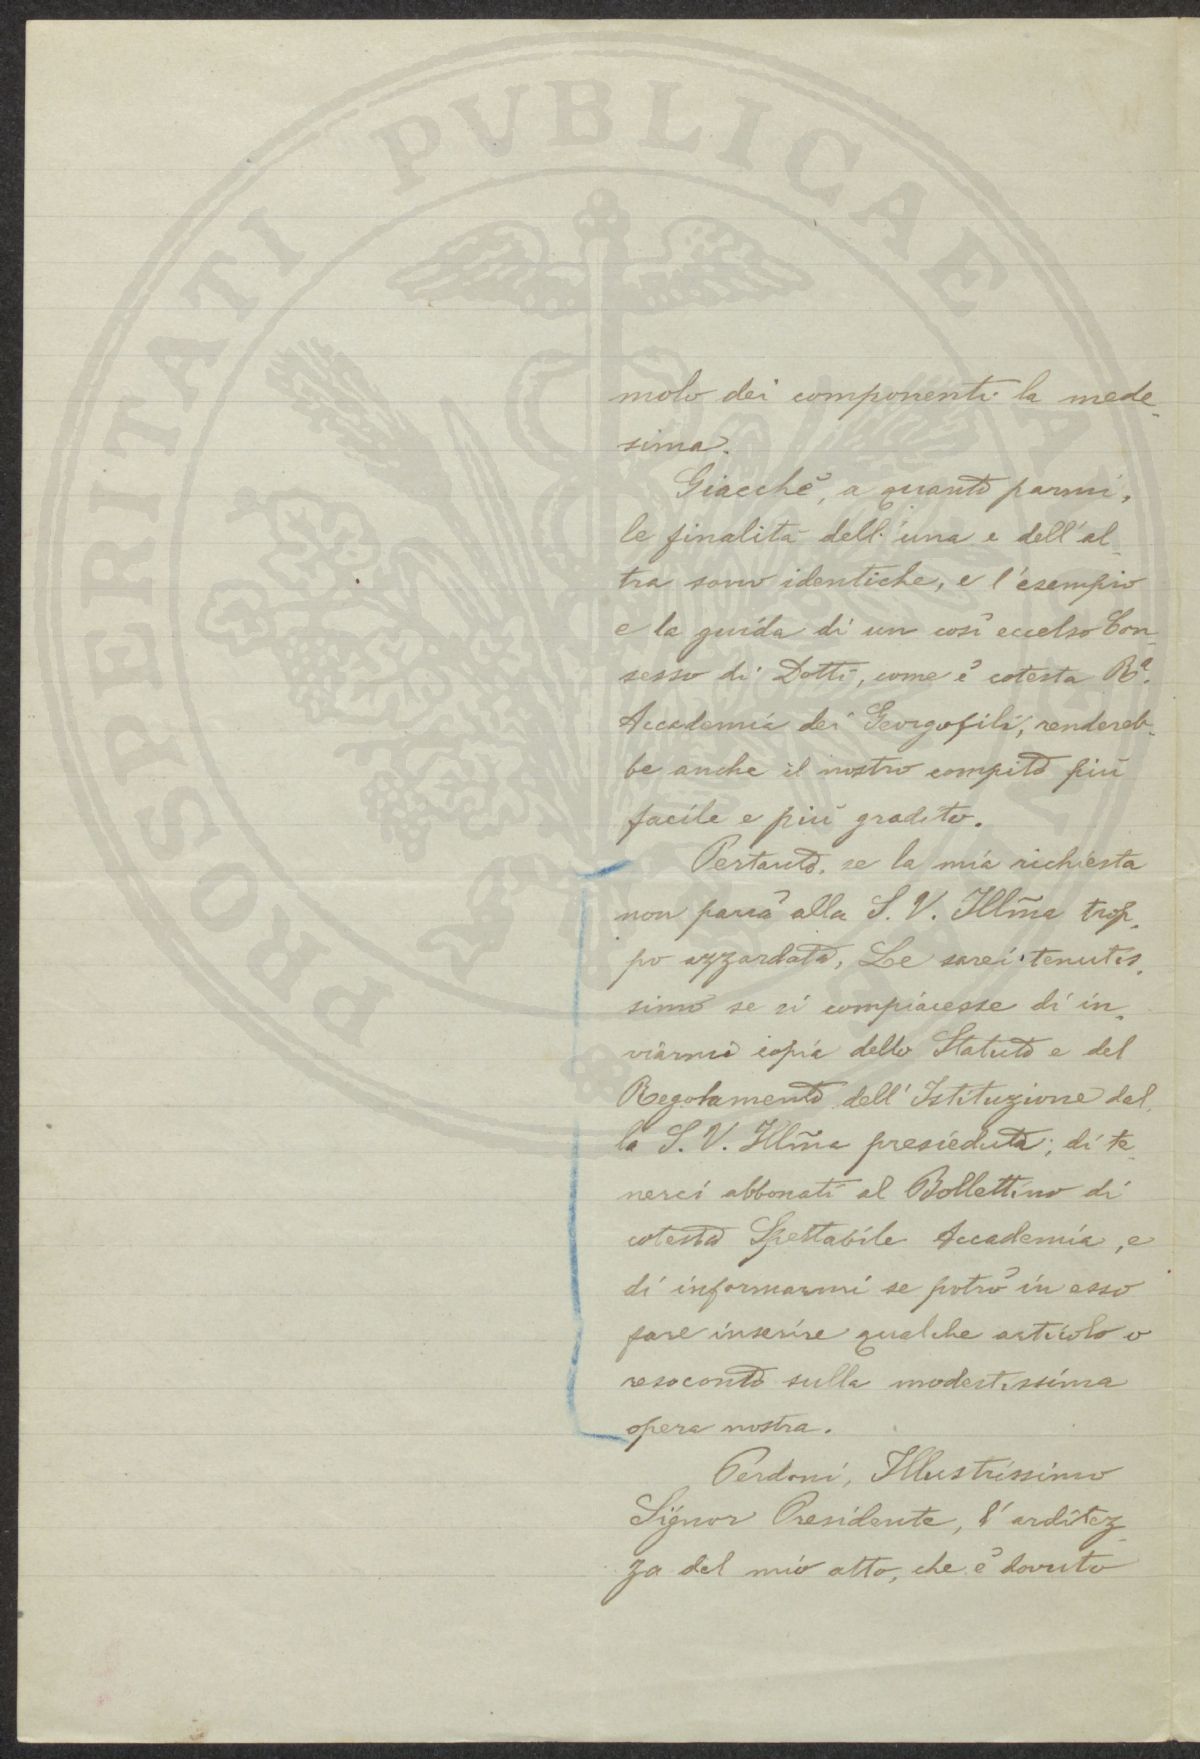 PROSPERITATI PVBLICAE AVGENDAE
molo dei componenti la mede-
sima.
Giacchè, a quanto parmi,
le finalità dell'una e dell'al-
tra sono identiche, e l'esempio
e la guida di un così eccelso Con-
sesso di Dotti, come è cotesta Rª.
Accademia dei Georgofili, rendereb-
be anche il nostro compito più
facile e più gradito.
Pertanto, se la mia richiesta
non parrà alla S. V. Illm̃a trop-
po azzardata, Le sarei tenutis-
simo se si compiacesse di in-
viarmi copia dello Statuto e del
Regolamento dell'Istituzione dal-
la S. V. Illm̃a presieduta; di te-
nerci abbonati al Bollettino di
cotesta Spettabile Accademia, e
di informarmi se potrò in esso
fare inserire qualche articolo o
resoconto sulla modestissima
opera nostra.
Perdoni, Illustrissimo
Signor Presidente, l'arditez-
za del mio atto, che è dovuto